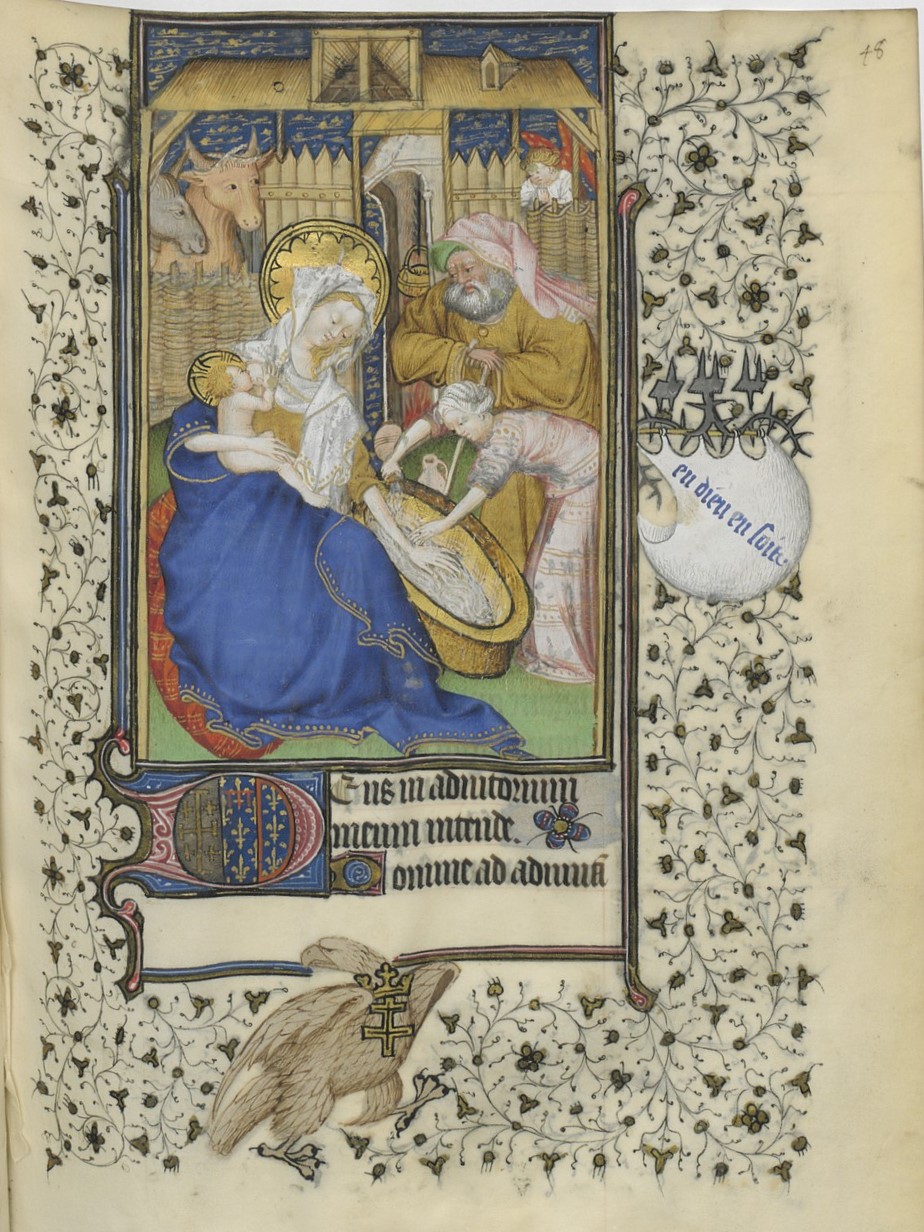 48
en dieu en soit.
Deus in adiutorium
meum intende.
omine ad adiuuā